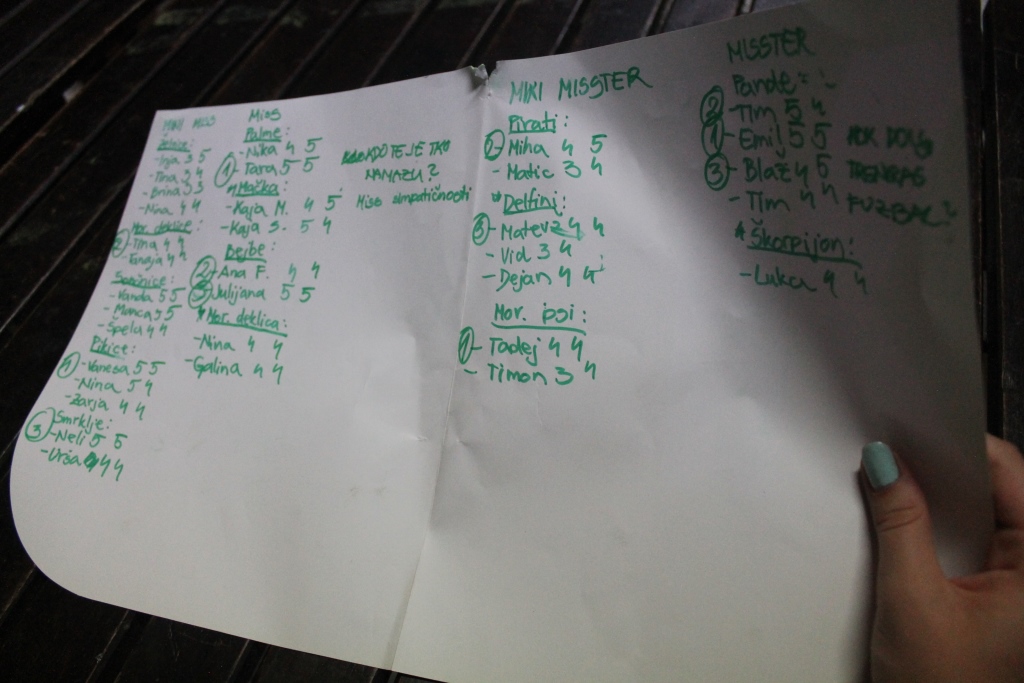 MINI MISS
- Tina 3 4
- Brina 3 3
- Nina 4 4
Mor. deklice:
② - Tina 4 4
- Tanaja 4 4
- Vanda 5 5
- Manca 3 5
- Špela 4 4
Pikice:
① - Vanesa 5 5
- Nina 5 4
- Zarja 4 4
Smrklje:
③ - Neli 5 5
- Urša 4 4
MISS
Palme:
- Nika 4 5
① - Tara 5 5
* Mačka:
- Kaja M. 4 5
- Kaja S. 5 4
Bejbe:
② - Ana F. 4 4
③ - Julijana 5 5
* Mor. deklica:
- Nina 4 4
- Galina 4 4
KDO TE JE TKO
NAMAZU?
Miss simpatičnosti
MINI MISSTER
Pirati:
② - Miha 4 5
- Matic 3 4
* Delfini:
③ - Matevž 4 4
- Vid 3 4
- Dejan 4 4
Mor. psi:
① - Tadej 4 4
- Timon 3 4
MISSTER
Pande:
② - Tim 5 4
① - Emil 5 5
③ - Blaž 4 5
- Tim 4 4
TRENIRAS
FUZBAL?
* Škorpijon:
- Luka 4 4